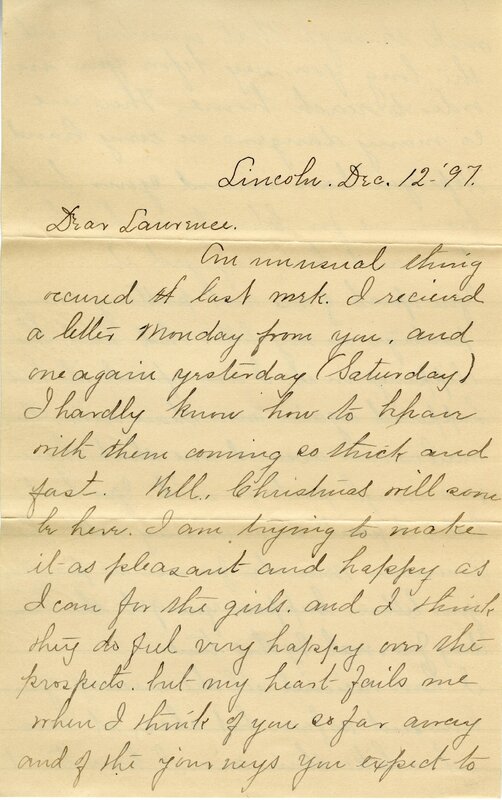 Lincoln. Dec. 12-'97.
Dear Lawrence.
An unusual thing
occured last week. I recieved
a letter Monday from you, and
one again yesterday (Saturday)
I hardly know how to
with them coming so thick and
fast. Well, Christmas will soon
be here. I am trying to make
it as pleasant and happy as
I can for the girls. and I think
they do feel very happy over the
prospects. but my heart fails me
when I think of you so far away
and of the journeys you expect to